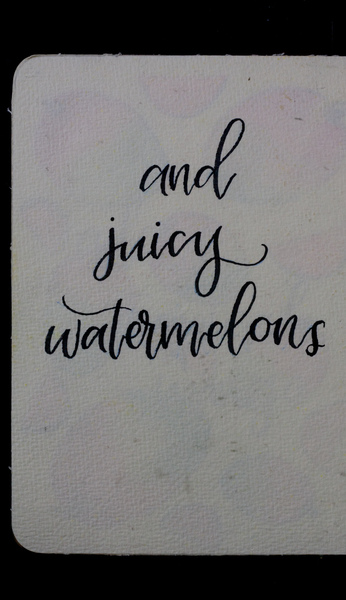 and
juicy
watermelons